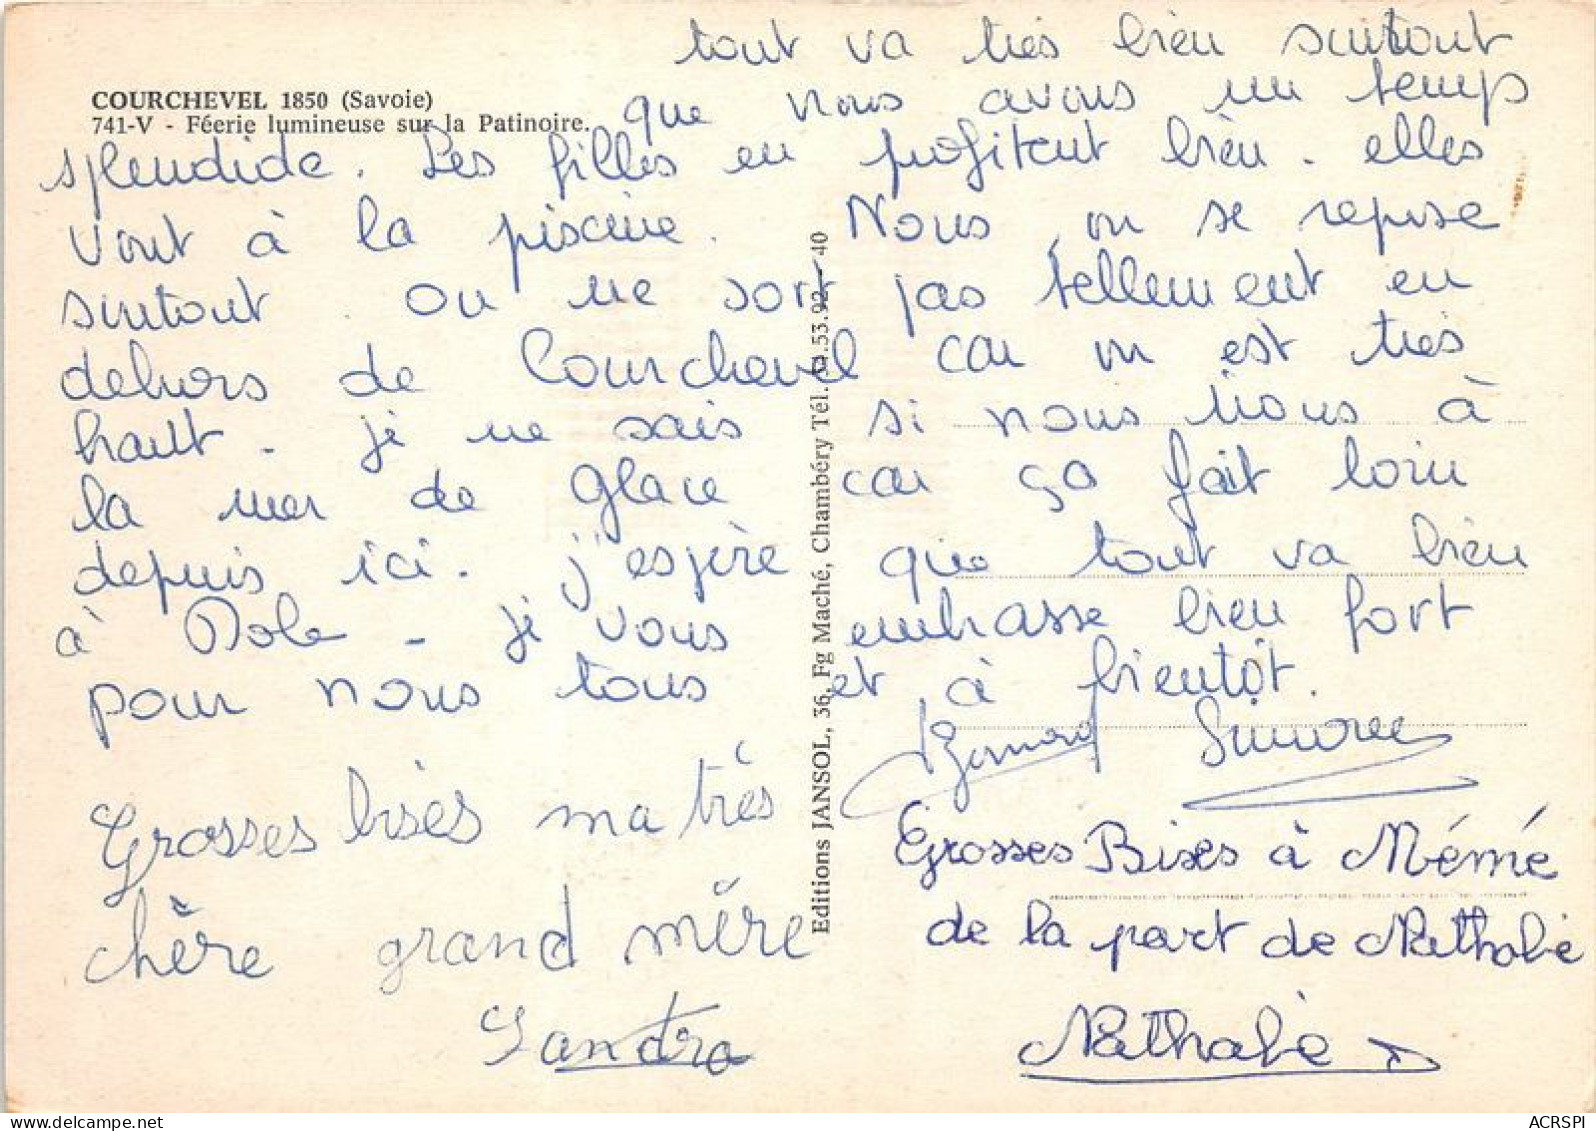 tout va très bien surtout
COURCHEVEL 1850 (Savoie)
741-V - Féerie lumineuse sur la Patinoire.
que nous avons un temps
splendide. Les filles en profitent bien. elles
vont à la piscine. Nous, on se repose
surtout. on ne sort pas tellement en
dehors de Courchevel car on est très
haut - je ne sais si nous irons à
la mer de glace car ça fait loin
depuis ici. j'espère que tout va bien
à Dole - je vous embrasse bien fort
pour nous tous et à bientôt.
Bernard Simone
Grosses bises ma très
chère grand mère
Sandra
Grosses Bises à Mémé
de la part de Nathalie
Nathalie
Editions JANSOL, 36, Fg Maché, Chambéry Tél. 34.53.92 - 40
ACRSPI